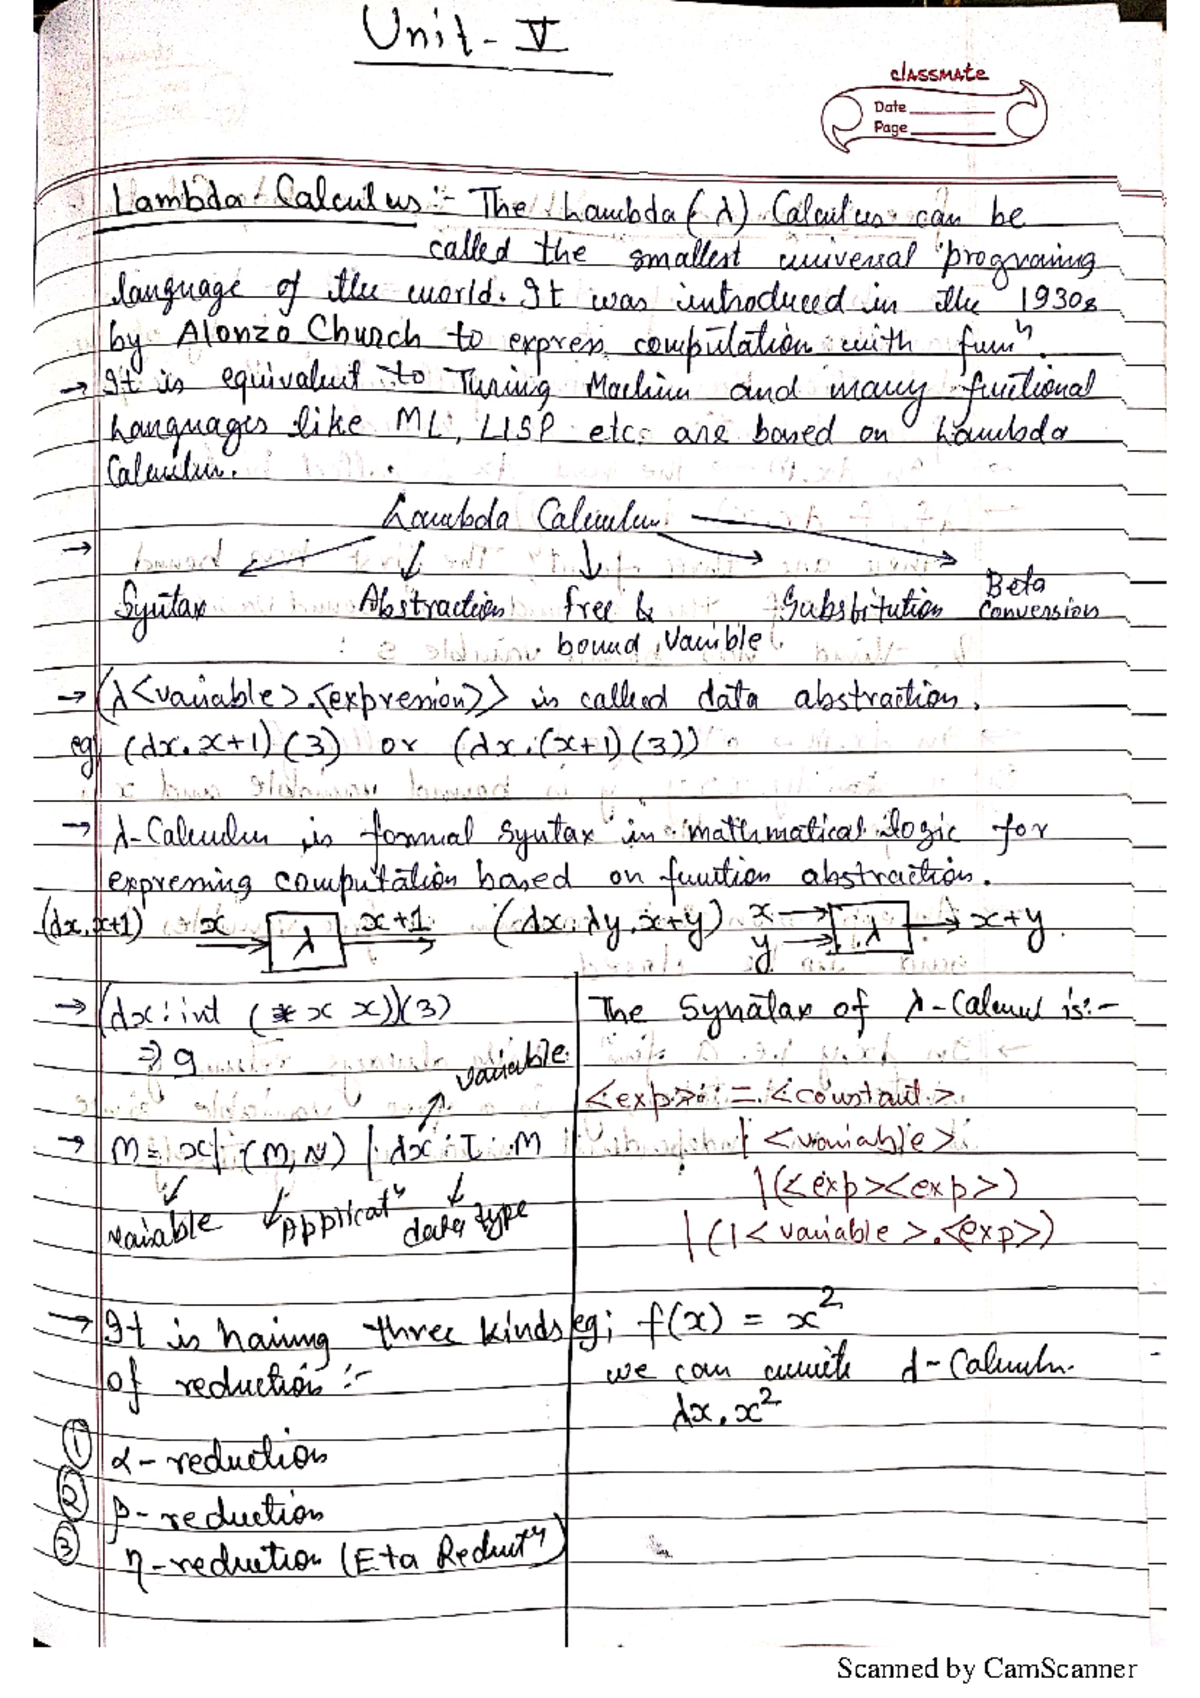 Unit - V
classmate
Date
Page
Lambda Calculus :- The Lambda (λ) Calculus can be
called the smallest universal programing
language of the world. It was introduced in the 1930s
by Alonzo Church to express computation with funⁿ.
→ It is equivalent to Turing Machine and many functional
Languages like ML, LISP etc. are based on Lambda
Calculus.
Lambda Calculus
→
Syntax Abstraction free & Substitution Beta Conversion
bound Varible
→ (λ<variable>.<expression>) is called data abstraction.
eg (λx.x+1)(3) or (λx.(x+1)(3))
→ λ-Calculus is formal syntax in mathmatical logic for
expressing computation based on function abstraction.
(λx.x+1) x → λ → x+1 (λx.λy.x+y) x y → λ → x+y.
→ (λx:int (* x x))(3)
⇒ 9
variable
→ M = x | (M, N) | λx : T . M
variable Applicatⁿ data type
→ It is having three kinds
of reduction :-
① α - reduction
② β - reduction
③ η - reduction (Eta Reductⁿ)
The Synatax of λ-Calcul is:-
<exp> :: = <constant>
| <variable>
| (<exp><exp>)
| (1<variable>.<exp>)
eg; f(x) = x²
we can write λ-Calculus.
λx.x²
Scanned by CamScanner